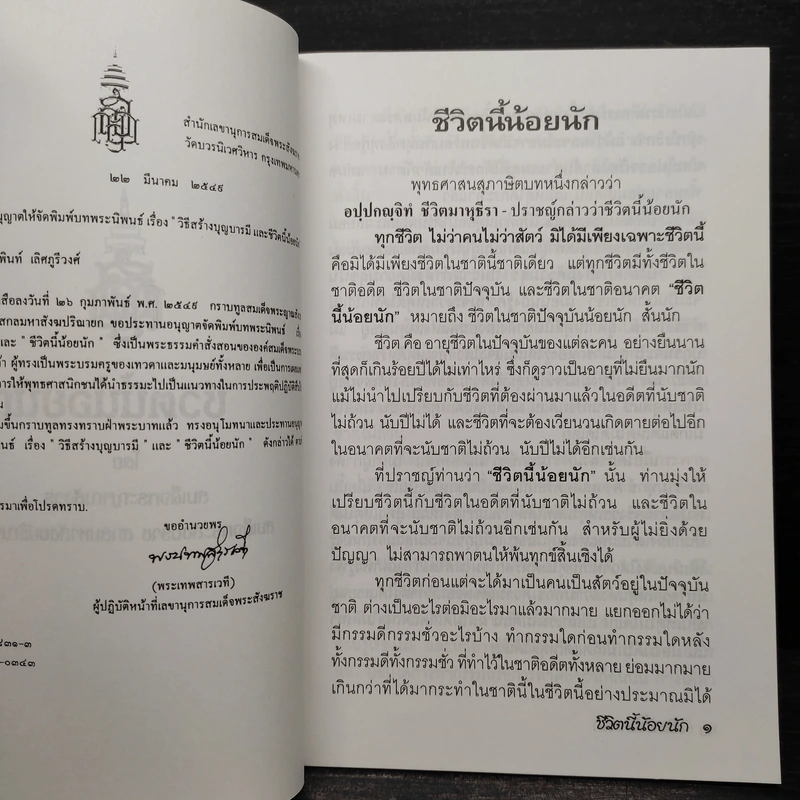 สำนักเลขานุการสมเด็จพระสังฆราช
วัดบวรนิเวศวิหาร กรุงเทพมหานคร
๒๒ มีนาคม ๒๕๔๙
ญาตให้จัดพิมพ์บทพระนิพนธ์ เรื่อง " วิธีสร้างบุญบารมี และชีวิตนี้น้อยนัก
พินท์ เลิศภูรีวงศ์
สือลงวันที่ ๒๖ กุมภาพันธ์ พ.ศ. ๒๕๔๙ กราบทูลสมเด็จพระญาณสัง
สกลมหาสังฆปริณายก ขอประทานอนุญาตจัดพิมพ์บทพระนิพนธ์
และ " ชีวิตนี้น้อยนัก " ซึ่งเป็นพระธรรมคำสั่งสอนขององค์สมเด็จพระ
ผู้ทรงเป็นพระบรมครูของเทวดาและมนุษย์ทั้งหลาย เพื่อเป็นการ
การให้พุทธศาสนิกชนได้นำธรรมะไปเป็นแนวทางในการประพฤติปฏิบัติ
น
ขึ้นกราบทูลทรงทราบฝ่าพระบาทแล้ว ทรงอนุโมทนาและประทานอนุญา
นธ์ เรื่อง " วิธีสร้างบุญบารมี " และ " ชีวิตนี้น้อยนัก " ดังกล่าวได้
รมาเพื่อโปรดทราบ.
ขออำนวยพร
(พระเทพสารเวที)
ผู้ปฏิบัติหน้าที่เลขานุการสมเด็จพระสังฆราช
๘๓๑-๓
-๐๓๔๓
ชีวิตนี้น้อยนัก
พุทธศาสนสุภาษิตบทหนึ่งกล่าวว่า
อปฺปกญฺจิทํ ชีวิตมาหุธีรา - ปราชญ์กล่าวว่าชีวิตนี้น้อยนัก
ทุกชีวิต ไม่ว่าคนไม่ว่าสัตว์ มิได้มีเพียงเฉพาะชีวิตนี้
คือมิได้มีเพียงชีวิตในชาตินี้ชาติเดียว แต่ทุกชีวิตมีทั้งชีวิตใน
ชาติอดีต ชีวิตในชาติปัจจุบัน และชีวิตในชาติอนาคต "ชีวิต
นี้น้อยนัก" หมายถึง ชีวิตในชาติปัจจุบันน้อยนัก สั้นนัก
ชีวิต คือ อายุชีวิตในปัจจุบันของแต่ละคน อย่างยืนนาน
ที่สุดก็เกินร้อยปีได้ไม่เท่าไหร่ ซึ่งก็ดูราวเป็นอายุที่ไม่ยืนมากนัก
แม้ไม่นำไปเปรียบกับชีวิตที่ต้องผ่านมาแล้วในอดีตที่นับชาติ
ไม่ถ้วน นับปีไม่ได้ และชีวิตที่จะต้องเวียนวนเกิดตายต่อไปอีก
ในอนาคตที่จะนับชาติไม่ถ้วน นับปีไม่ได้อีกเช่นกัน
ที่ปราชญ์ท่านว่า "ชีวิตนี้น้อยนัก" นั้น ท่านมุ่งให้
เปรียบชีวิตนี้กับชีวิตในอดีตที่นับชาติไม่ถ้วน และชีวิตใน
อนาคตที่จะนับชาติไม่ถ้วนอีกเช่นกัน สำหรับผู้ไม่ยิ่งด้วย
ปัญญา ไม่สามารถพาตนให้พ้นทุกข์สิ้นเชิงได้
ทุกชีวิตก่อนแต่จะได้มาเป็นคนเป็นสัตว์อยู่ในปัจจุบัน
ชาติ ต่างเป็นอะไรต่อมิอะไรมาแล้วมากมาย แยกออกไม่ได้ว่า
มีกรรมดีกรรมชั่วอะไรบ้าง ทำกรรมใดก่อนทำกรรมใดหลัง
ทั้งกรรมดีทั้งกรรมชั่ว ที่ทำไว้ในชาติอดีตทั้งหลาย ย่อมมากมาย
เกินกว่าที่ได้มากระทำในชาตินี้ในชีวิตนี้อย่างประมาณมิได้
ชีวิตนี้น้อยนัก ๑